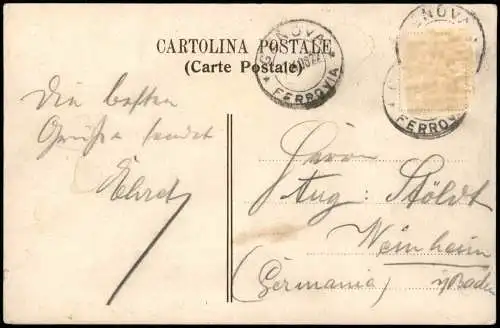 CARTOLINA POSTALE
(Carte Postale)
GENOVA
* FERROVIA *
GENOVA
* FERROVIA
Die besten
Grüße sendet
Ehret
Herrn
Aug: Stöldt
Weinheim
(Germania) i/Baden